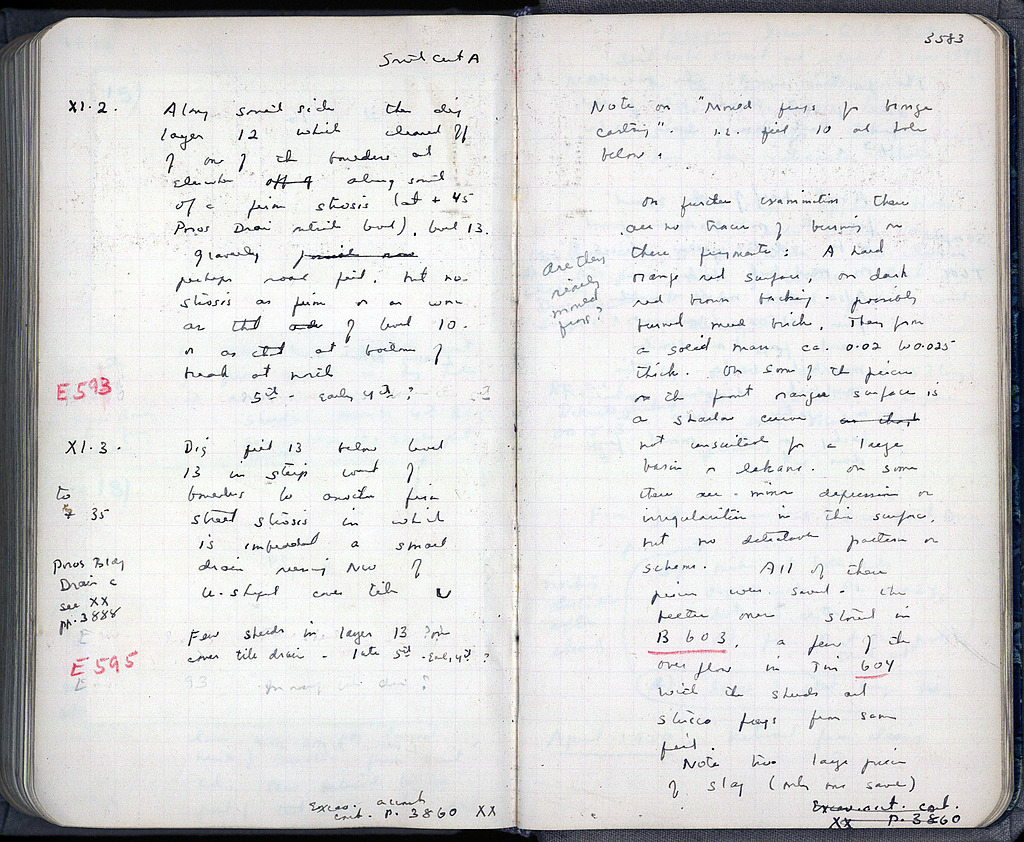 South Cut A
XI.2. Along south side the dig
layer 12 which cleaned off
of one of the boulders at
elevation off of along south
of a firm strosis (at + 45
Poros Drain level), level 13.
gravelly
perhaps road fill, but no
strosis as firm or as worn
as that of level 10.
or as that at bottom of
at north
E 593
5th - Early 4th ?
XI.3. Dig fill 13 below level
13 in strip west of
boulders to another firm
street strosis in which
is imbedded a small
drain running NW of
U-shaped cover tile U
to
+ 35
Poros Bldg
Drain c
see XX
pp. 3888
Few sherds in layer 13 from
cover tile drain - late 5th - Early 4th ?
E 595
93 ?
Excav. account
cont. p. 3860 XX
3583
Note on "Mould frags for bronze
casting". i.e. fill 10 at hole
below.
On further examination there
are no traces of burning on
these fragments: A hard
orange red surface, on dark
red brown backing - possibly
burned mud brick. They form
a solid mass ca. 0.02 to 0.025
thick. On some of the pieces
on the front orange surface is
a shallow curve as that
not unsuited for a large
basin or lekane. On some
there are - minor depressions or
irregularities in this surface,
but no detectable pattern or
scheme. All of these
pieces were saved - the
better ones stored in
B 603, a few of the
overflow in Tin 604
with the sherds and
stucco frags from same
fill.
Note two large pieces
of slag (only one saved)
Excav. acct. cont.
XX p. 3860
Are they
really
mould
frags?